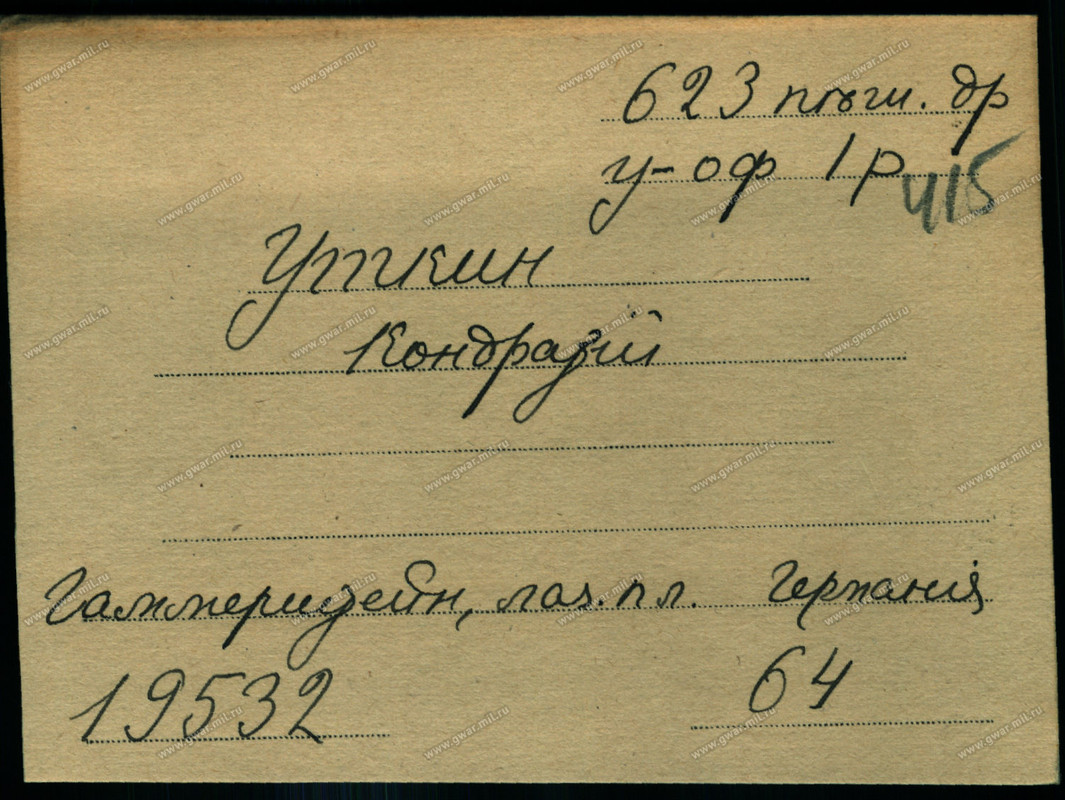 623 пѣш. др
у-оф 1 р
415
Уткин
Кондразій
Гаммершейн, лаз. пл. Германія
19532 64
www.gwar.mil.ru